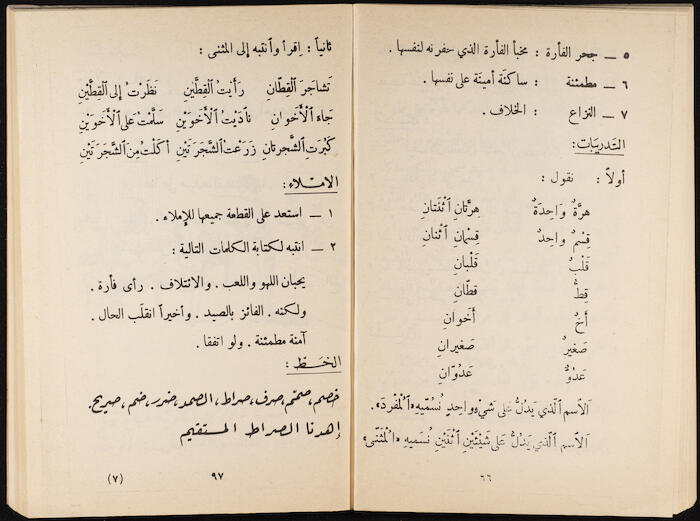 ٥ ــ جحر الفأرة : مخبأ الفأرة الذي حفرته لنفسها .
٦ ــ مطمئنة : ساكنة أمينة على نفسها .
٧ ــ النزاع : الخلاف .
التدريبات :
أولاً : نقول :
هِرَّةٌ وَاحِدَةٌ هِرَّتانِ اثْنَتانِ
قِسْمٌ واحِدٌ قِسْمانِ اثْنانِ
قَلْبٌ قَلْبانِ
قِطٌّ قِطّانِ
أَخٌ أَخَوانِ
صَغيرٌ صَغيرانِ
عَدُوٌّ عَدُوّانِ
الاسم الَّذي يَدُلُّ عَلى شَيْءٍ واحِدٍ نُسَمّيهِ «المُفْرَدَ» .
الاسم الَّذي يَدُلُّ عَلى شَيْئَيْنِ اثْنَيْنِ نُسَمّيهِ «المُثَنّى»
٦٦
ثانياً : اِقرأ وانتبه إلى المثنى :
تَشاجَرَ القِطّانِ رَأَيْتُ القِطَّيْنِ نَظَرْتُ إلى القِطَّيْنِ
جاءَ الأَخَوانِ نادَيْتُ الأَخَوَيْنِ سَلَّمْتُ عَلى الأَخَوَيْنِ
كَبُرَتِ الشَّجَرتانِ زَرَعْتُ الشَّجَرَتَيْنِ أكَلْتُ مِنَ الشَّجَرَتَيْنِ
الإملاء :
١ ــ استعد على القطعة جميعها للإملاء .
٢ ــ انتبه لكتابة الكلمات التالية :
يحبان اللهو واللعب . والائتلاف . رأى فأرة .
ولكنه . الفائز بالصيد . وأخيراً انقلَب الحال .
آمنة مطمئنة . ولو اتفقا .
الخط :
خصم، صمّم، صرف، صراط، الصمد، ضرر، ضم، صريح.
إهدنا الصراط المستقيم
٩٧
(٧)